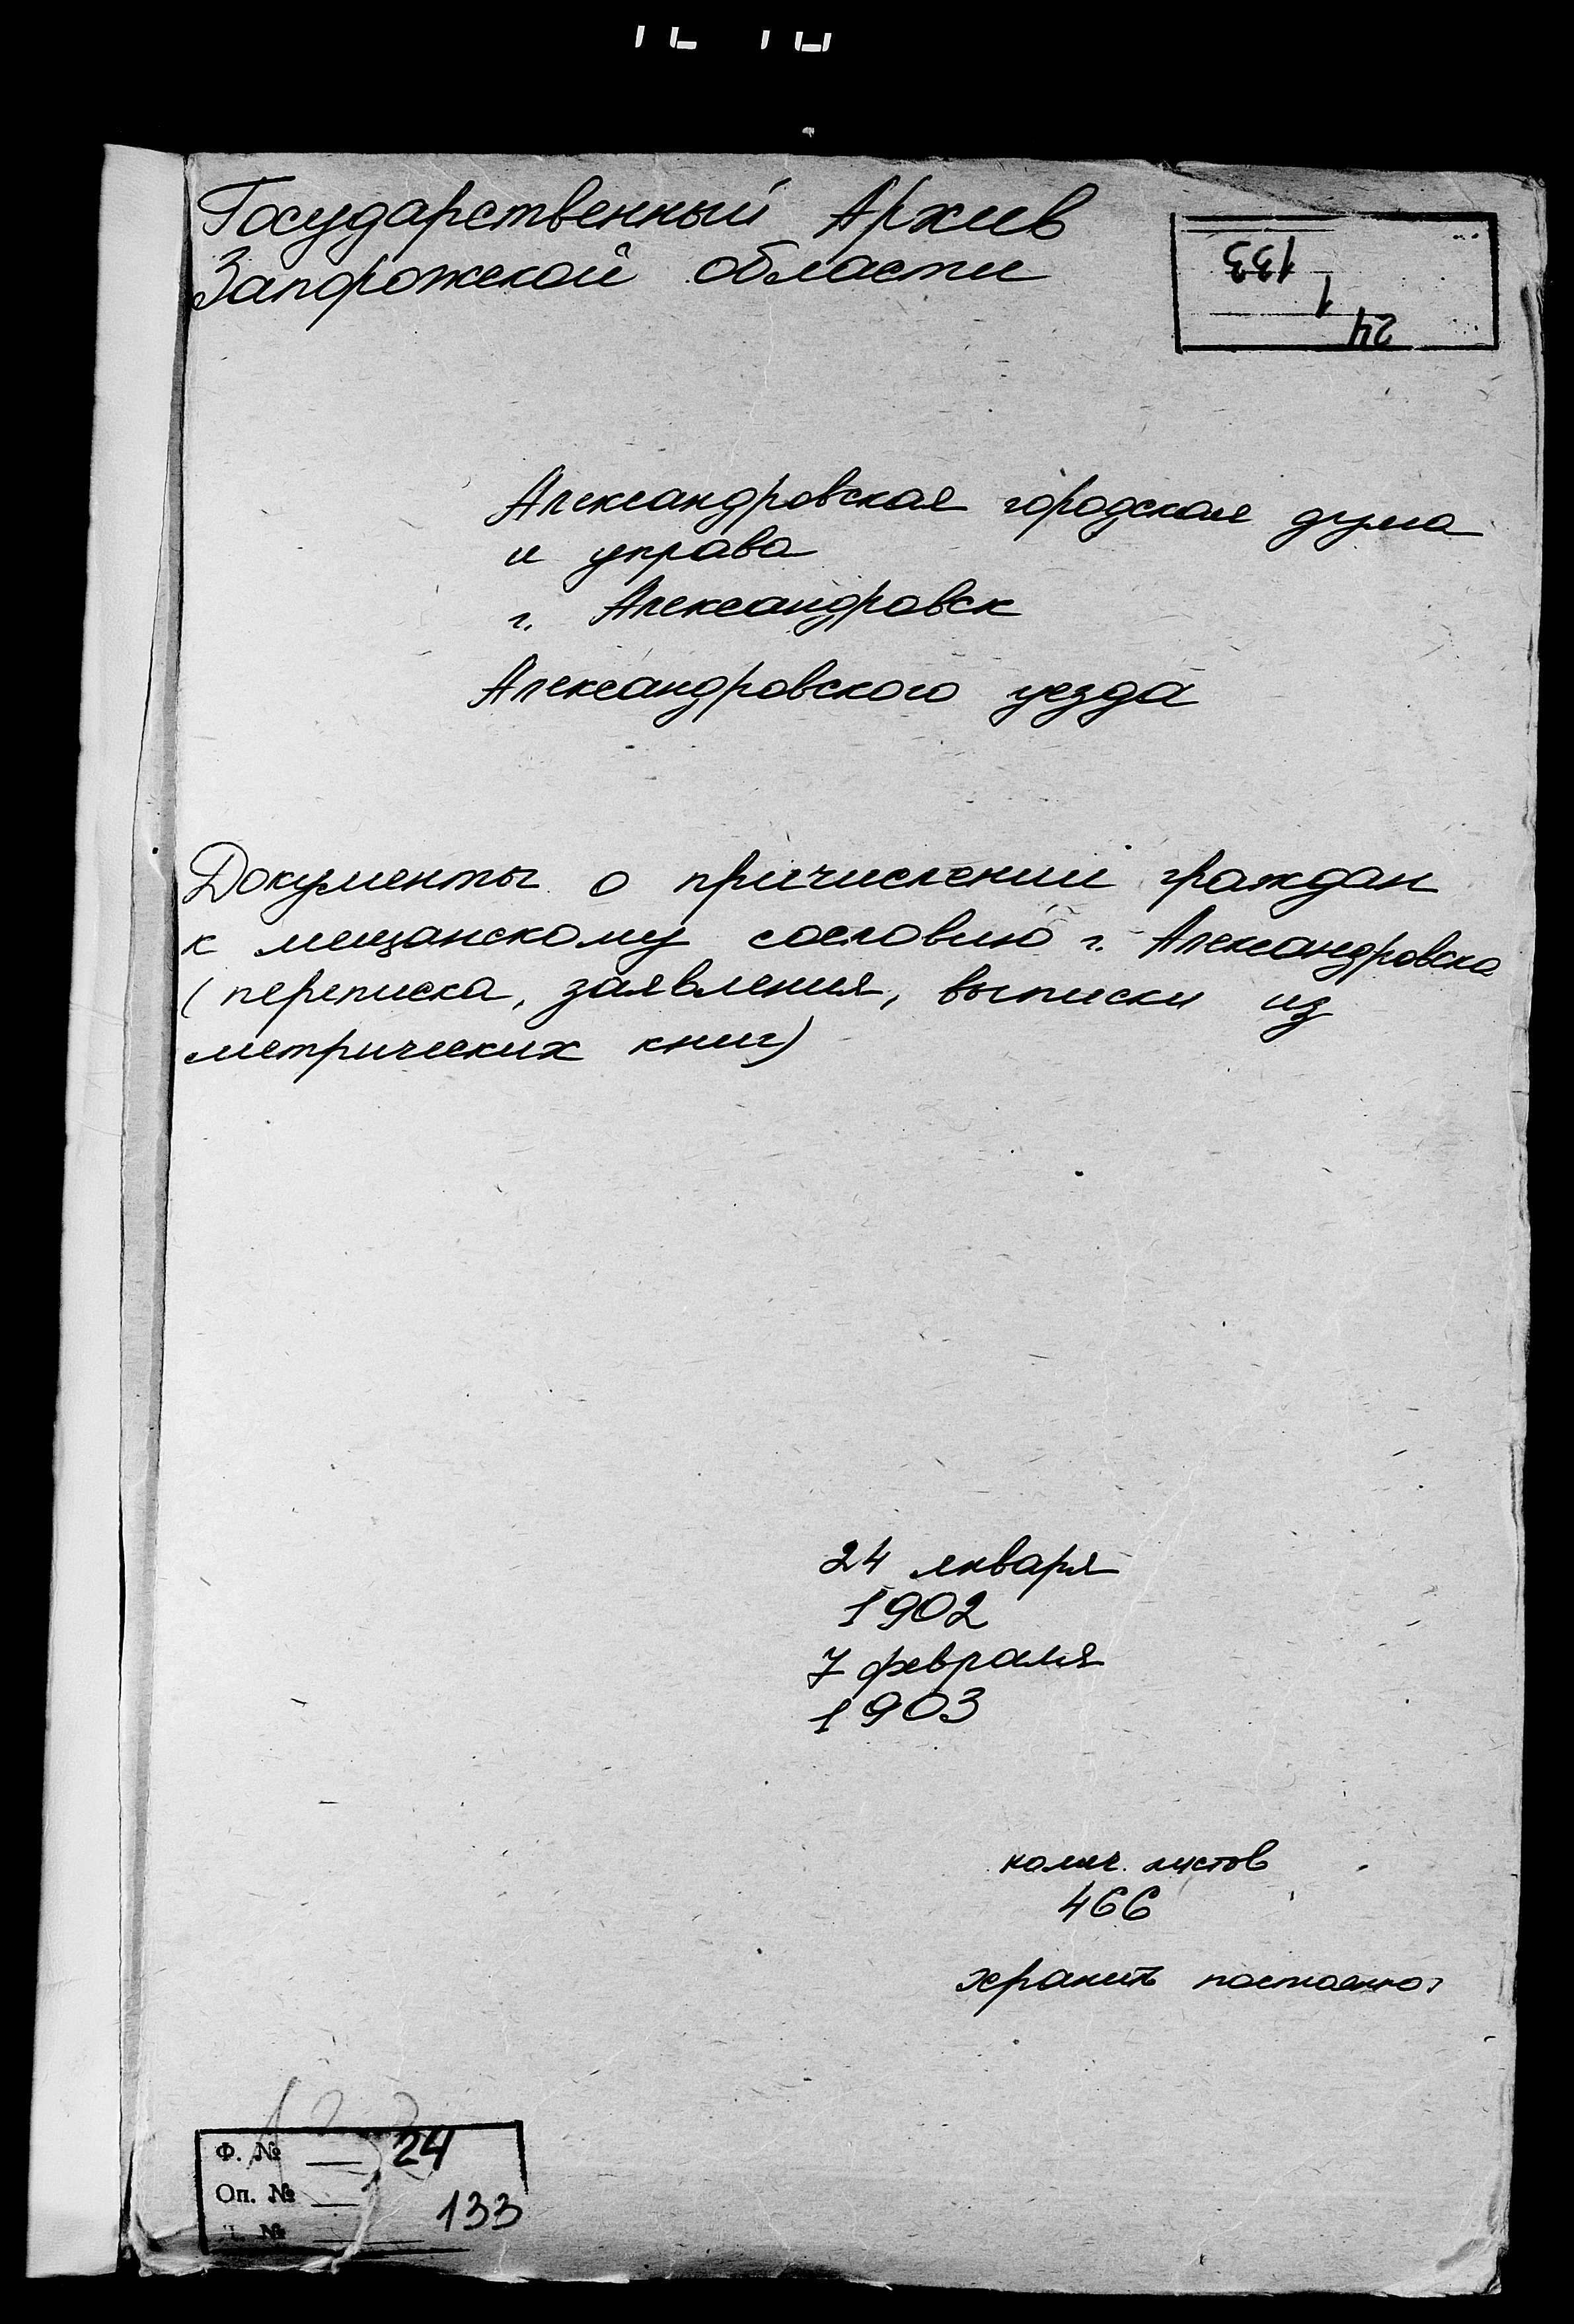 Государственный Архив
Запорожской области
133
1
24
Александровская городская дума
и управа
г. Александровск
Александровского уезда
Документы о причислении граждан
к мещанскому сословию г. Александровска
(переписка, заявления, выписки из
метрических книг)
24 января
1902
7 февраля
1903
колич. листов
466
хранить постоянно
Ф. № 24
Оп. №
№ 133